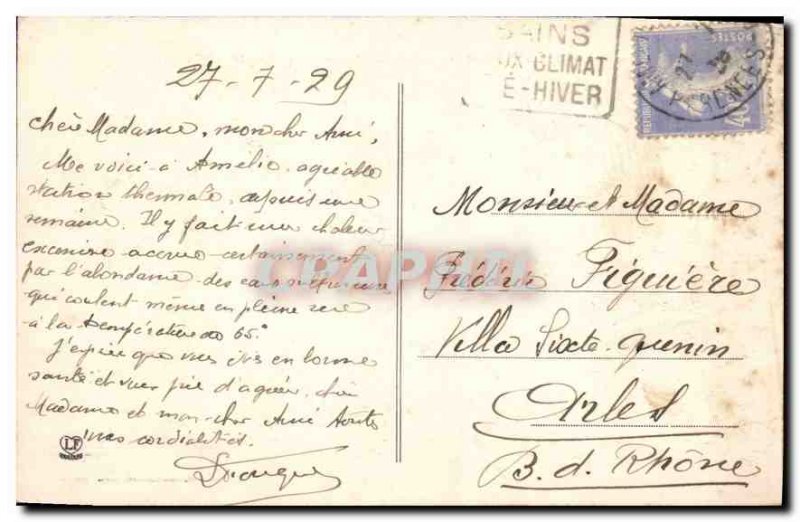 27-7-29
chère Madame, mon cher Ami,
Me voici à Amélie, agréable
station thermale, depuis une
semaine. Il y fait une chaleur
excessive accrue certainement
par l'abondance des eaux sulfureuses
qui coulent même en pleine rue
à la température de 65°
J'espère que vous êtes en bonne
santé et vous prie d'agréer, chère
Madame et mon cher Ami toutes
mes cordialités.
LF
BAINS
UX CLIMAT
É-HIVER
PYRENEES
27
POSTES
Monsieur et Madame
Frédéric Figuière
Villa Sixte-Quenin
Arles
B. d. Rhône
CPAPHIL